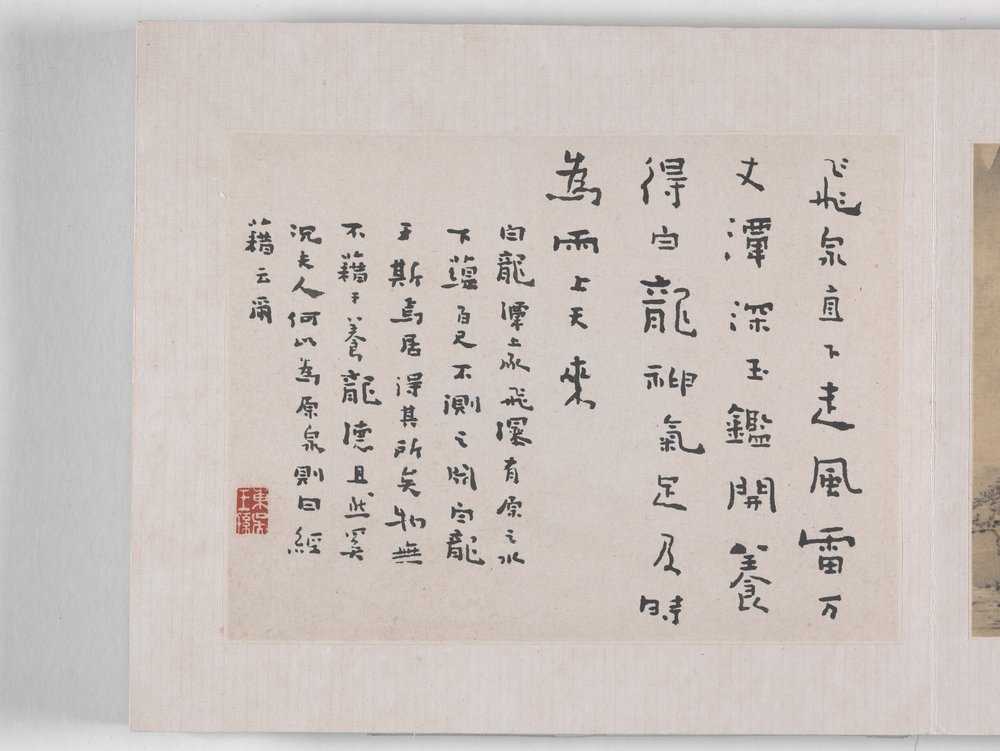 飛泉直下走風雷万
丈潭深玉鑑開養
得白龍神氣足及時
為雨上天來
白龍潭上承飛瀑有原之水
下蘊百尺不測之淵白龍
于斯焉居得其所矣物無
不藉于養龍德且然奚
況夫人何以為原泉則曰經
藉云爾
東吳
王孫